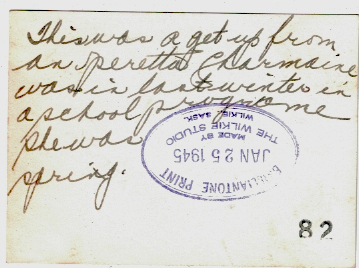 This was a get up from
an operetta Charmaine
was in last winter in
a school programme
she was
spring.
BRILLIANTONE PRINT
JAN 25 1945
MADE BY
THE WILKIE STUDIO
WILKIE, SASK.
82